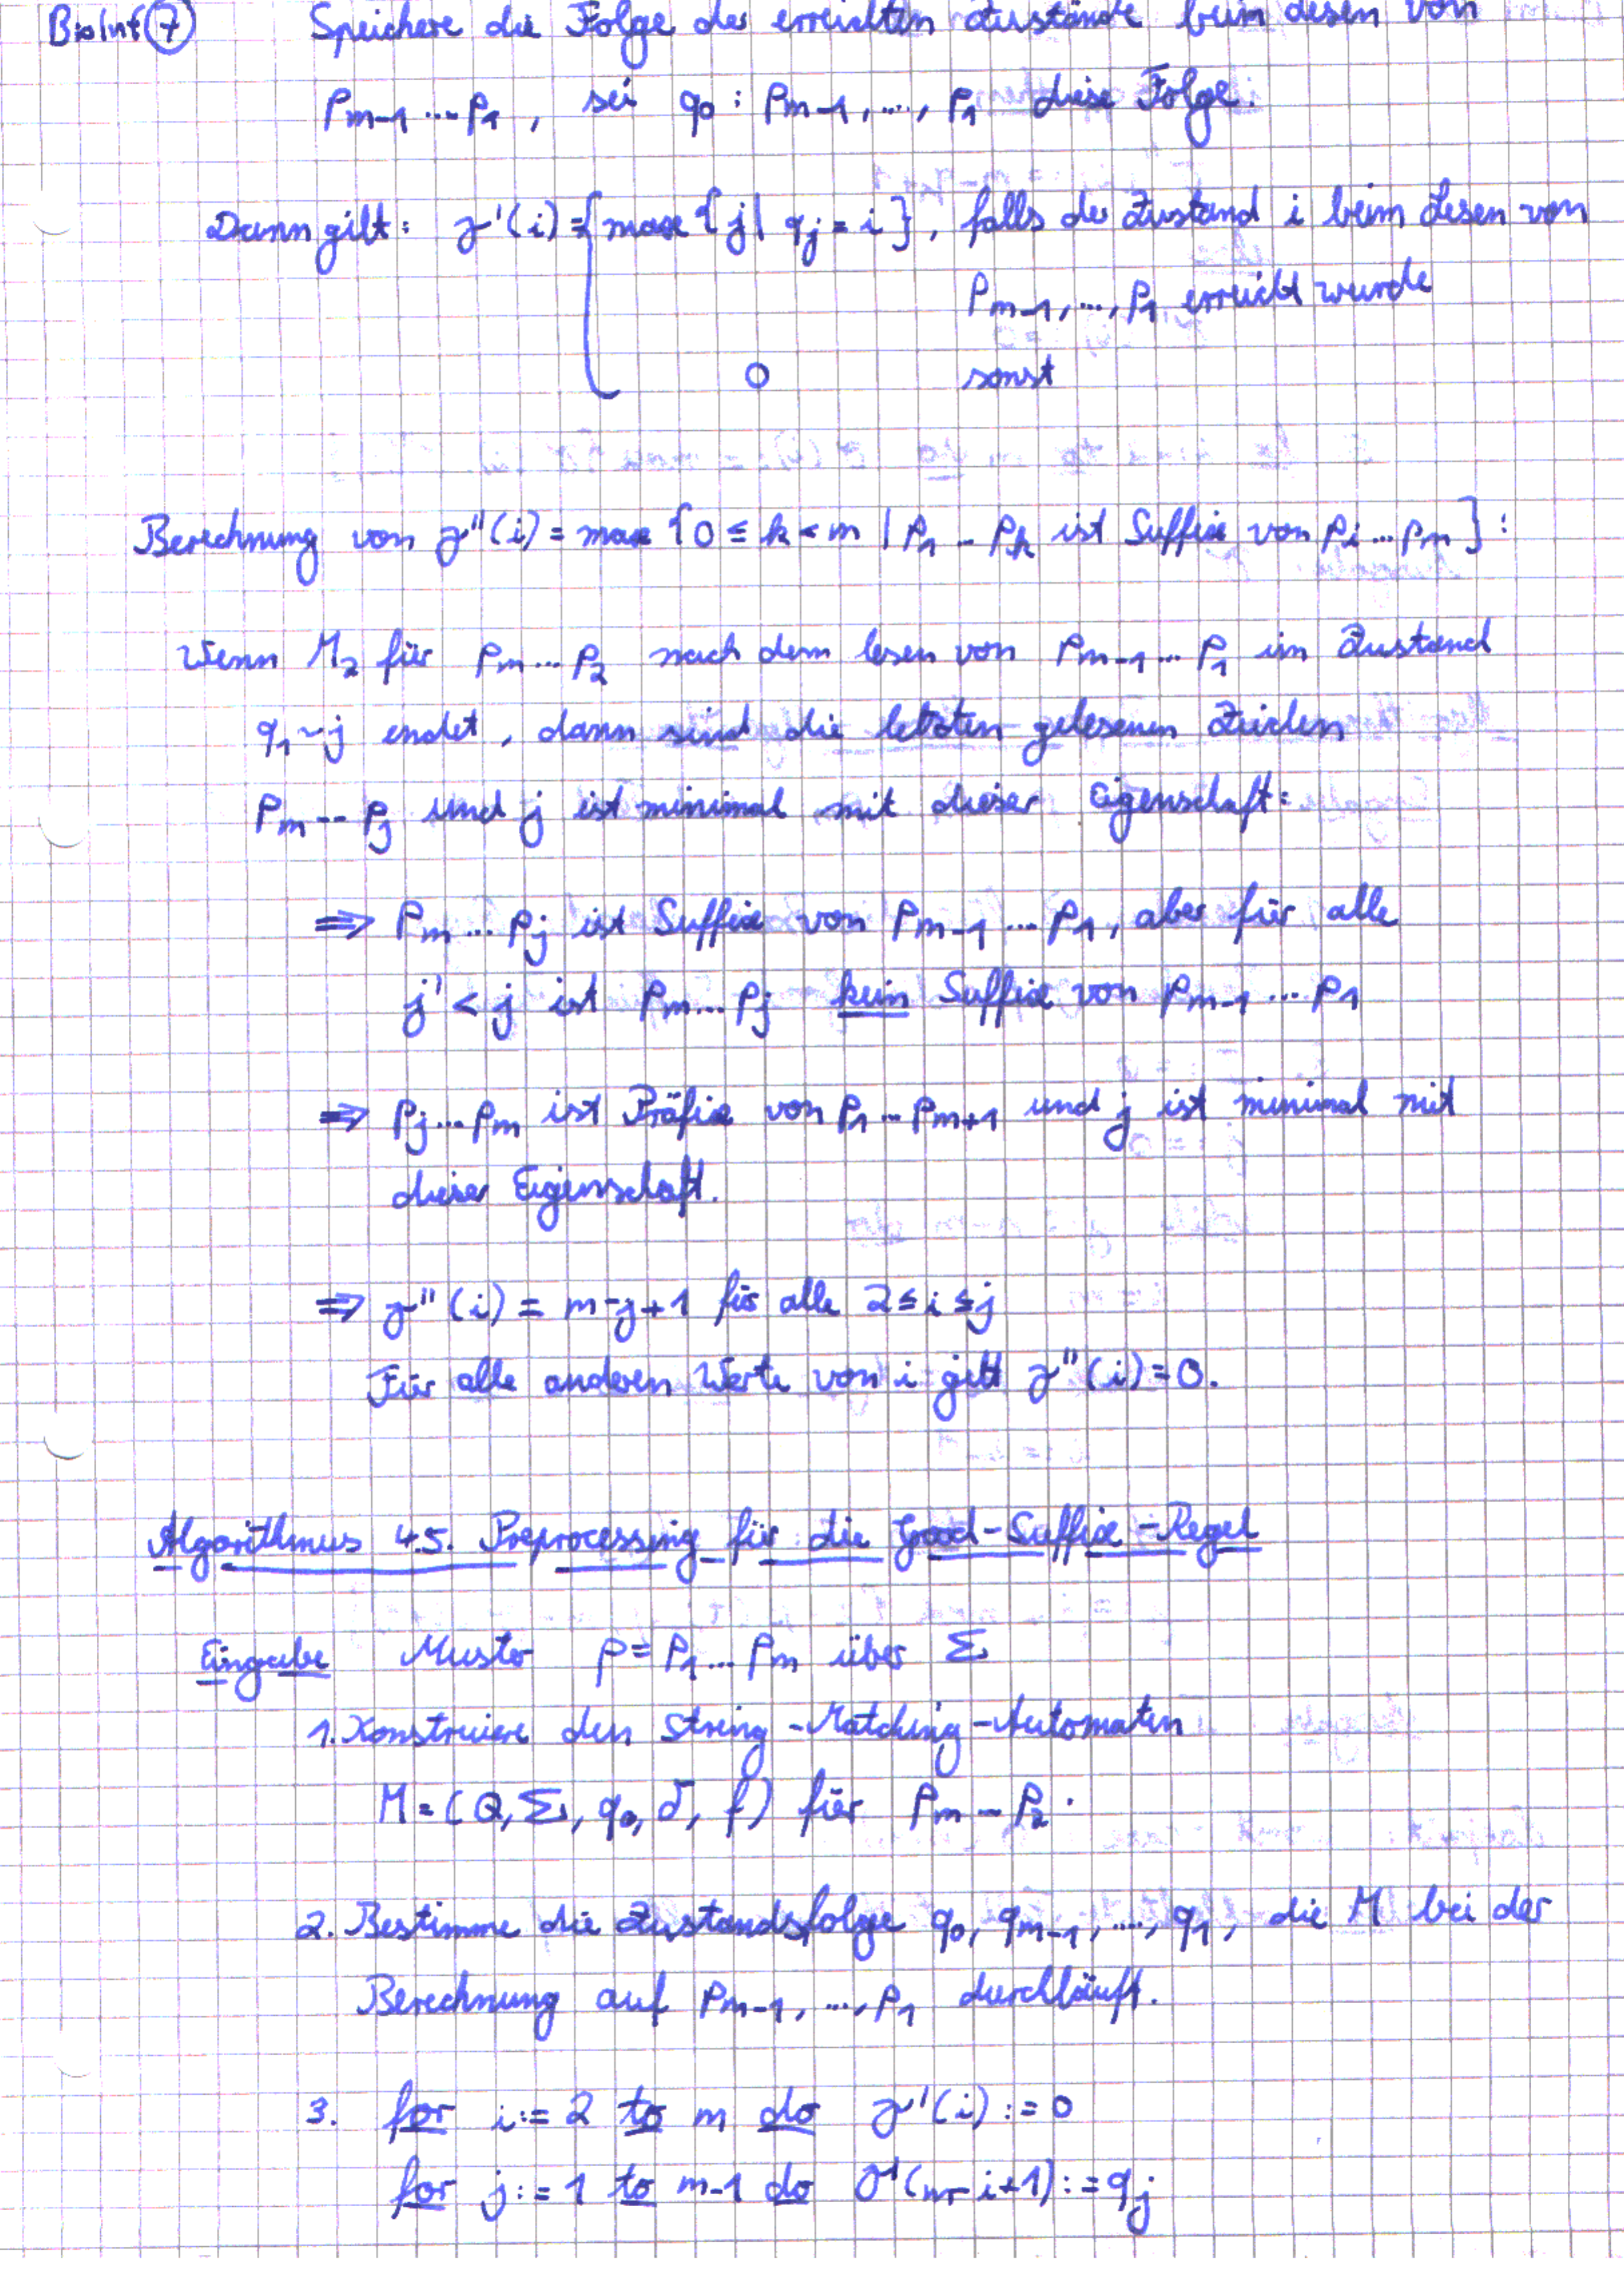 BioInf 7 Speichere die Folge der erreichten Zustände beim Lesen von
Pm-1 ... P1, sei q0 : Pm-1, ..., P1 diese Folge.
Dann gilt: γ'(i) = { max { j | qj = i }, falls der Zustand i beim Lesen von
Pm-1, ..., P1 erreicht wurde
0 sonst
Berechnung von γ''(i) = max {0 ≤ k < m | P1 ... Pk ist Suffix von Pi ... Pm } :
Wenn M2 für Pm ... P2 nach dem lesen von Pm-1 ... P1 im Zustand
q1 ~ j endet, dann sind die letzten gelesenen Zeichen
Pm ... Pj und j ist minimal mit dieser Eigenschaft:
⇒ Pm ... Pj ist Suffix von Pm-1 ... P1, aber für alle
j' < j ist Pm ... Pj kein Suffix von Pm-1 ... P1
⇒ Pj ... Pm ist Präfix von P1 ... Pm+1 und j ist minimal mit
dieser Eigenschaft.
⇒ γ''(i) = m-j+1 für alle 2 ≤ i ≤ j
Für alle anderen Werte von i gilt γ''(i) = 0.
Algorithmus 4.5. Preprocessing für die Good-Suffix-Regel
Eingabe Muster p = P1 ... Pm über Σ
1. Konstruiere den String-Matching-Automaten
M = (Q, Σ, q0, δ, f) für Pm ... P2.
2. Bestimme die Zustandsfolge q0, qm-1, ..., q1, die M bei der
Berechnung auf Pm-1, ..., P1 durchläuft.
3. for i := 2 to m do γ'(i) := 0
for j := 1 to m-1 do γ'(m-i+1) := qj